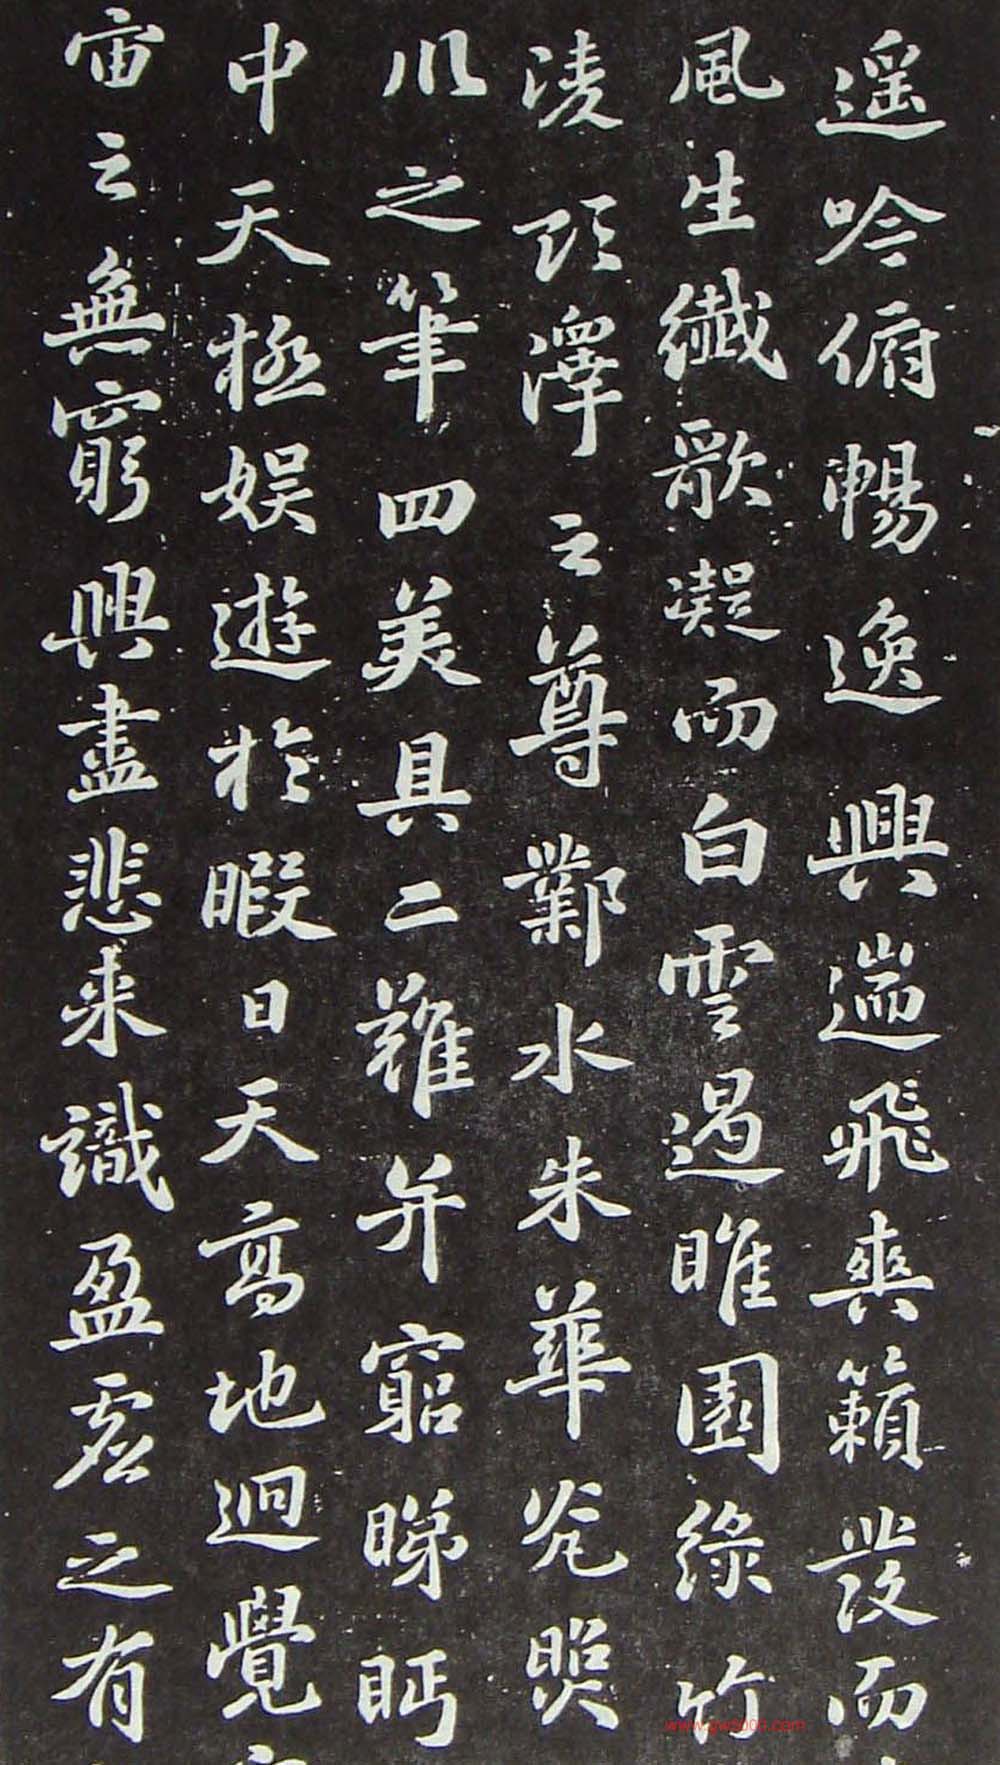 遥吟俯暢逸興遄飛爽籟發而
風生纖歌凝而白雲遏睢園綠竹
淩彭澤之尊鄴水朱華光照
川之筆四美具二難并窮睇眄
中天極娛遊於暇日天高地迥覺
宙之無窮興盡悲來識盈虛之有
www.gw5000.com